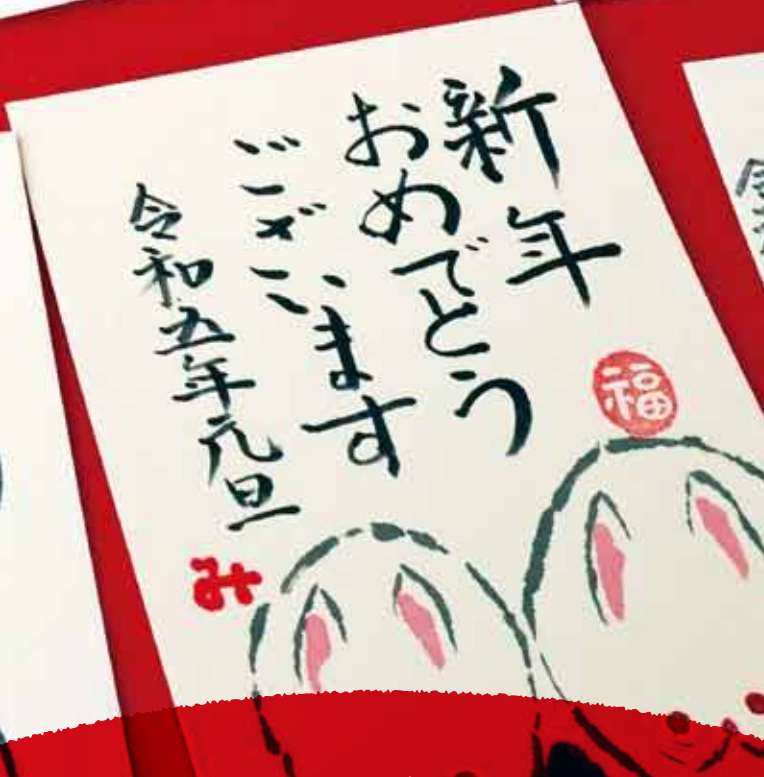 新年
おめでとう
ございます
令和五年元旦
み
福